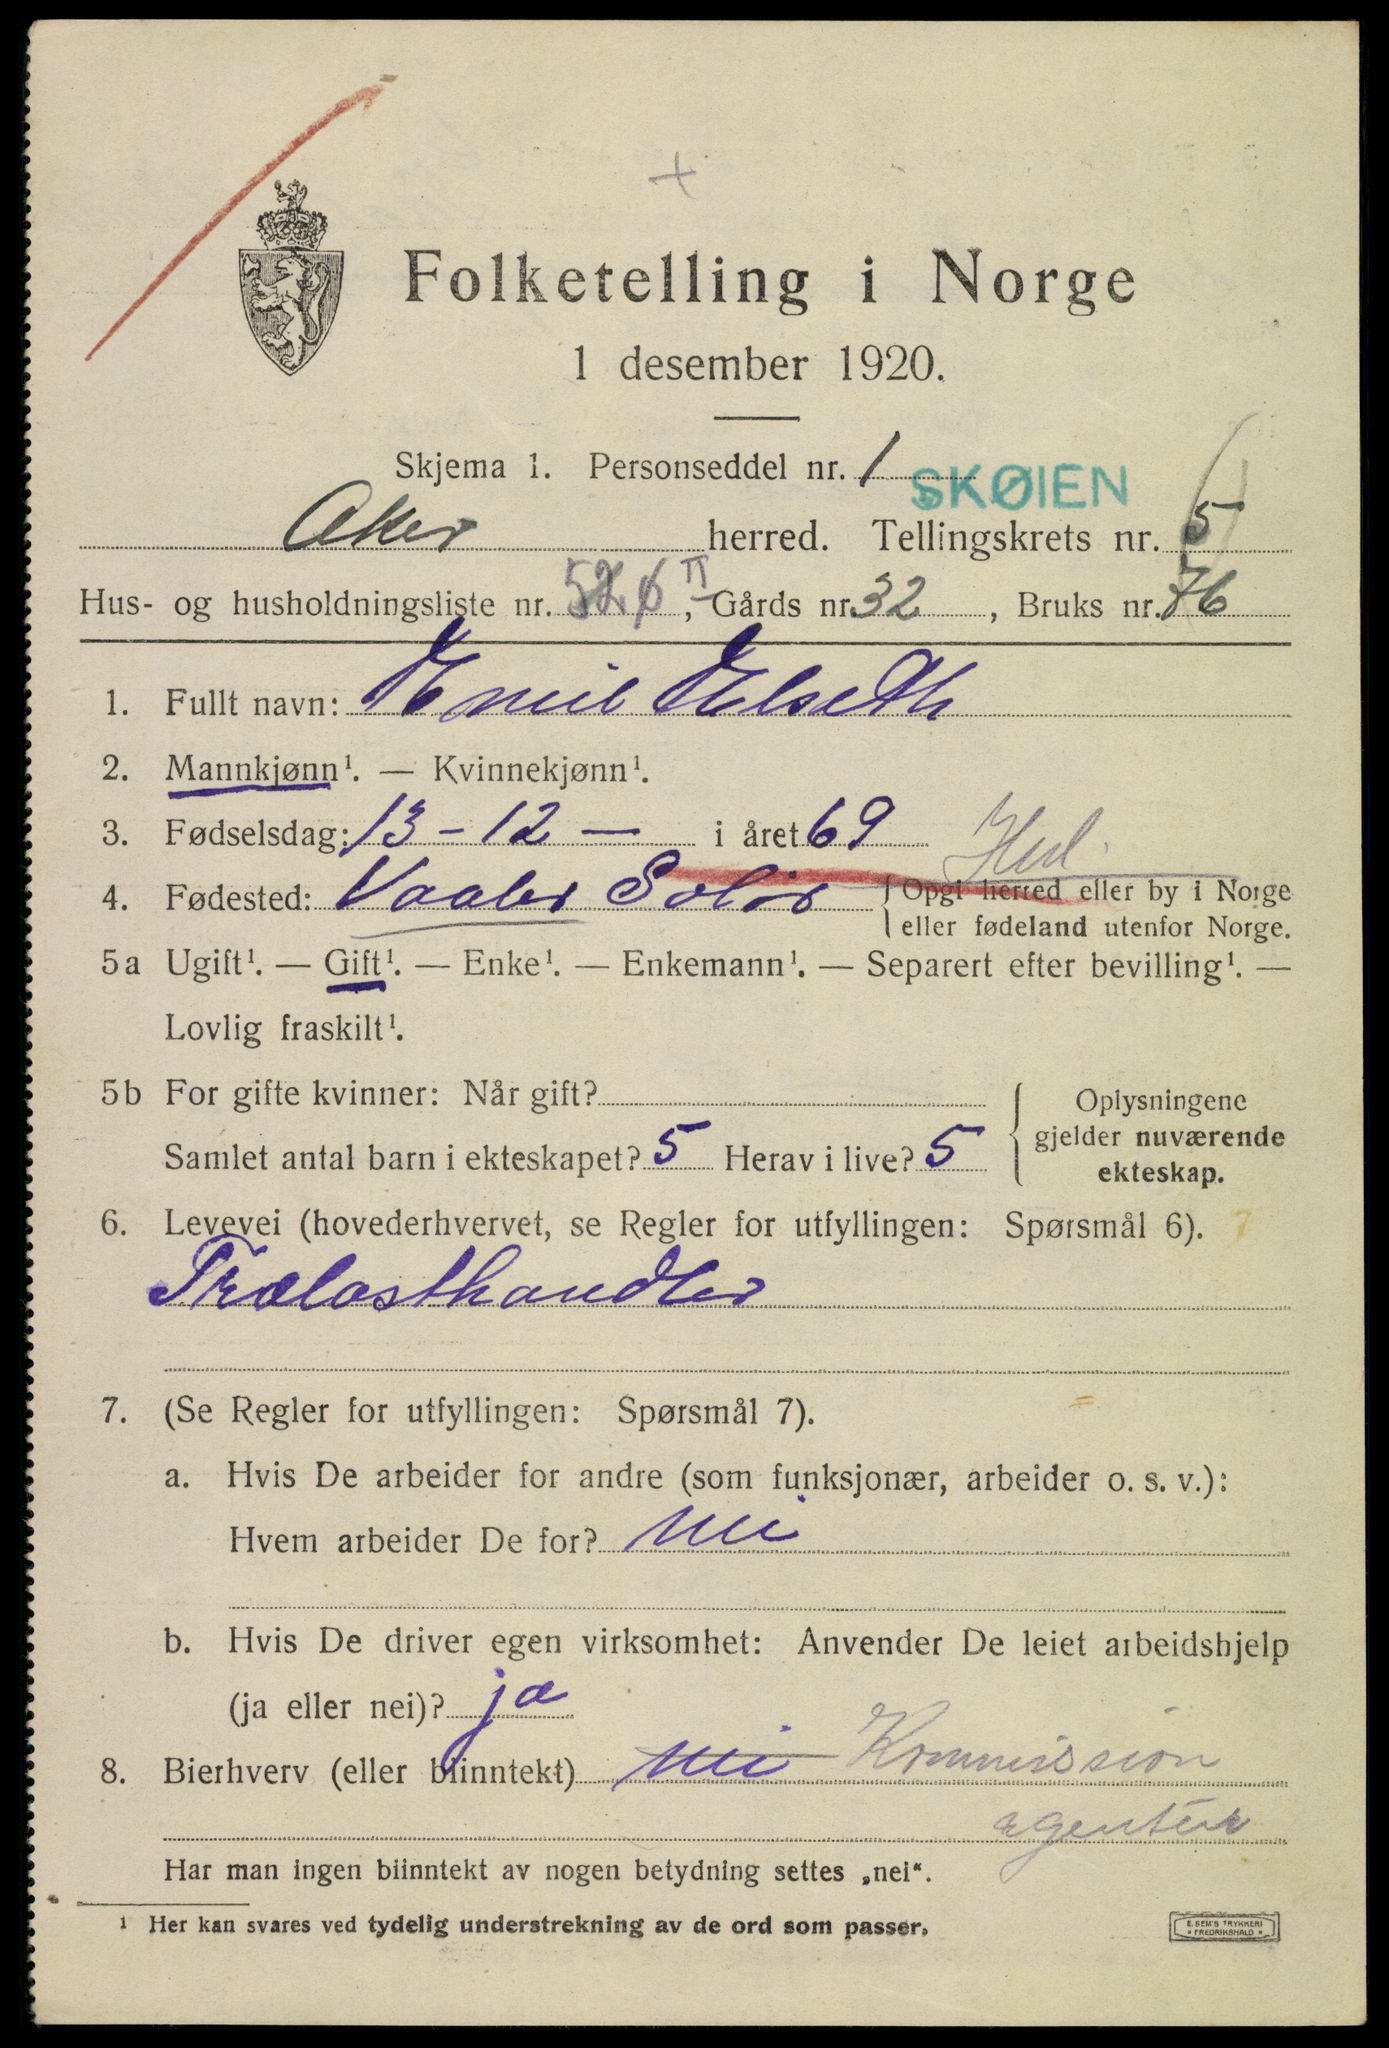 Folketelling i Norge
1 desember 1920.
Skjema 1. Personseddel nr. 1
SKØIEN
Aker herred. Tellingskrets nr. 5
Hus- og husholdningsliste nr. 52 II, Gårds nr. 32, Bruks nr. 76
1. Fullt navn: Emil Elseth
2. Mannkjønn¹. — Kvinnekjønn¹.
3. Fødselsdag: 13 - 12 — i året 69
Hed.
4. Fødested: Vaaler Solør { Opgi herred eller by i Norge
eller fødeland utenfor Norge.
5a Ugift¹. — Gift¹. — Enke¹. — Enkemann¹. — Separert efter bevilling¹. —
Lovlig fraskilt¹.
5b For gifte kvinner: Når gift?
Samlet antal barn i ekteskapet? 5 Herav i live? 5
Oplysningene
gjelder nuværende
ekteskap.
6. Levevei (hovederhvervet, se Regler for utfyllingen: Spørsmål 6). 7
Trælasthandler
7. (Se Regler for utfyllingen: Spørsmål 7).
a. Hvis De arbeider for andre (som funksjonær, arbeider o. s. v.):
Hvem arbeider De for? nei
b. Hvis De driver egen virksomhet: Anvender De leiet arbeidshjelp
(ja eller nei)? ja
8. Bierhverv (eller biinntekt) nei Kommission
agentur
Har man ingen biinntekt av nogen betydning settes „nei“.
¹ Her kan svares ved tydelig understrekning av de ord som passer.
E. SEM'S TRYKKERI
* FREDRIKSHALD *